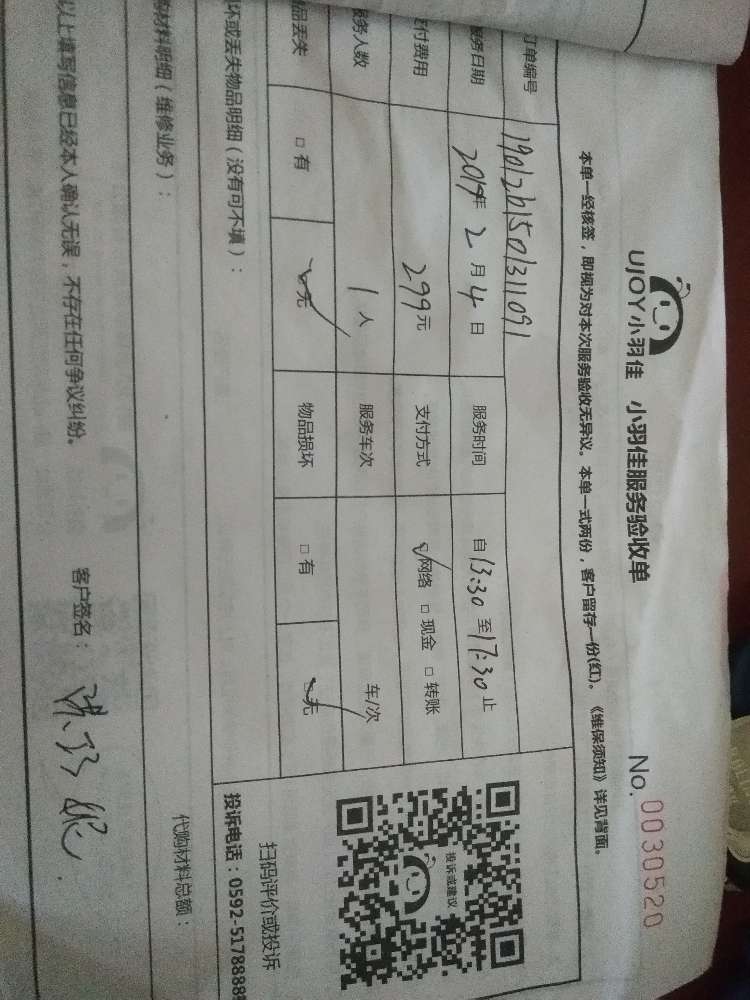 UJOY小羽佳 小羽佳服务验收单
No. 0030520
本单一经核签，即视为对本次服务验收无异议。本单一式两份，客户留存一份(红)。《维保须知》详见背面。
订单编号 1901261501311091
服务日期 2019年2月4日 服务时间 自13:30至17:30止
支付费用 299元 支付方式 ☑网络 □现金 □转账
服务人数 1人 服务车次 车/次
物品丢失 □有 ☑无 物品损坏 □有 ☑无
坏或丢失物品明细（没有可不填）：
投诉或建议
扫码评价或投诉
投诉电话：0592-5178888
购材料明细（维修业务）：
代购材料总额：
以上填写信息已经本人确认无误，不存在任何争议纠纷。
客户签名：